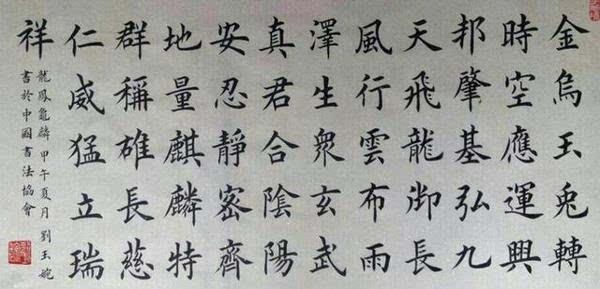 金烏玉兔轉
時空應運興
邦肇基弘九
天飛龍御長
風行雲布雨
澤生衆玄武
真君合陰陽
安忍靜密齊
地量麒麟特
群稱雄長慈
仁威猛立瑞
祥
龍鳳龜麟 甲午夏月 劉玉婉
書於中國書法協會